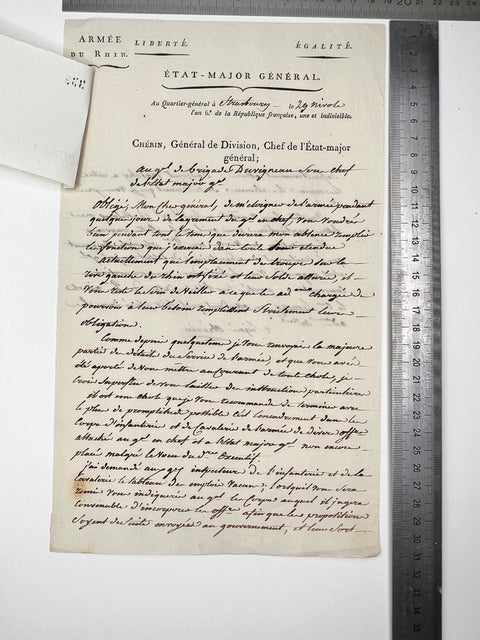 ARMÉE
DU RHIN.
LIBERTÉ.
ÉGALITÉ.
ÉTAT-MAJOR GÉNÉRAL.
Au Quartier-général à Strasbourg le 29 nivose
l'an 6.e de la République française, une et indivisible.
CHÉRIN, Général de Division, Chef de l'État-major
général;
au gal de brigade Duvigneau sous chef
de l'état major gal
Obligé, Mon cher général, de m'eloigner de l'armée pendant
quelque jours de l'agrement du gal en chef, vous voudrés
bien pendant tout le tems que durera mon absence remplir
les fonctions que j'exerce dans toute leur etendue
actuellement que l'emplacement des troupes sur la
rive gauche du rhin est fixé et leur solde assurée, il
vous reste le soin de veiller a ce que les chargés de
pourvoir a leur besoin remplissent strictement leurs
obligations.
Comme depuis quelques tems je vous renvoyais la majeure
partie des détails du service de l'armée, et que vous avés
été aporté de vous mettre au courant de toute chose, je
crois superflu de vous laisser des instructions particulieres
il est une chose que je vous recommande de terminer avec
le plus de promptitude possible c'est l'encadrement dans les
Corps d'infanterie et de cavalerie de l'armée de divers offrs
attachés au gal en chef et a l'état major gal non encore
placés malgré le voeu du Dre Executif.
j'ai demandé aux gaux inspecteurs de l'infanterie et de la
Cavalerie le tableau des emplois vacans; lorsqu'il vous sera
remis vous indiquerés au gal les Corps auquel il jugera
convenable d'incorporer les offrs afin que les propositions
soyent de suite envoyées au gouvernement, et leur sort